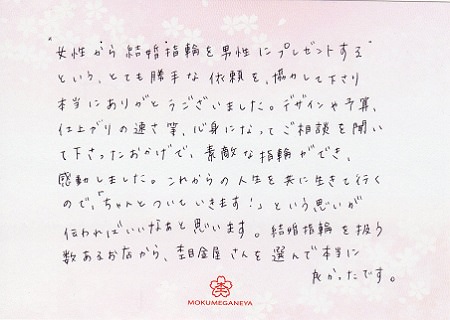 "女性から結婚指輪を男性にプレゼントする"
という、とても勝手な依頼を、協力して下さり
本当にありがとうございました。デザインや予算、
仕上がりの速さ等、心身になってご相談を聞い
て下さったおかげで、素敵な指輪ができ、
感動しました。これからの人生を共に生きて行く
ので、「ちゃんとついていきます!」という思いが
伝わればいいなぁと思います。結婚指輪を扱う
数あるお店から、杢目金屋さんを選んで本当に
良かったです。
MOKUMEGANEYA